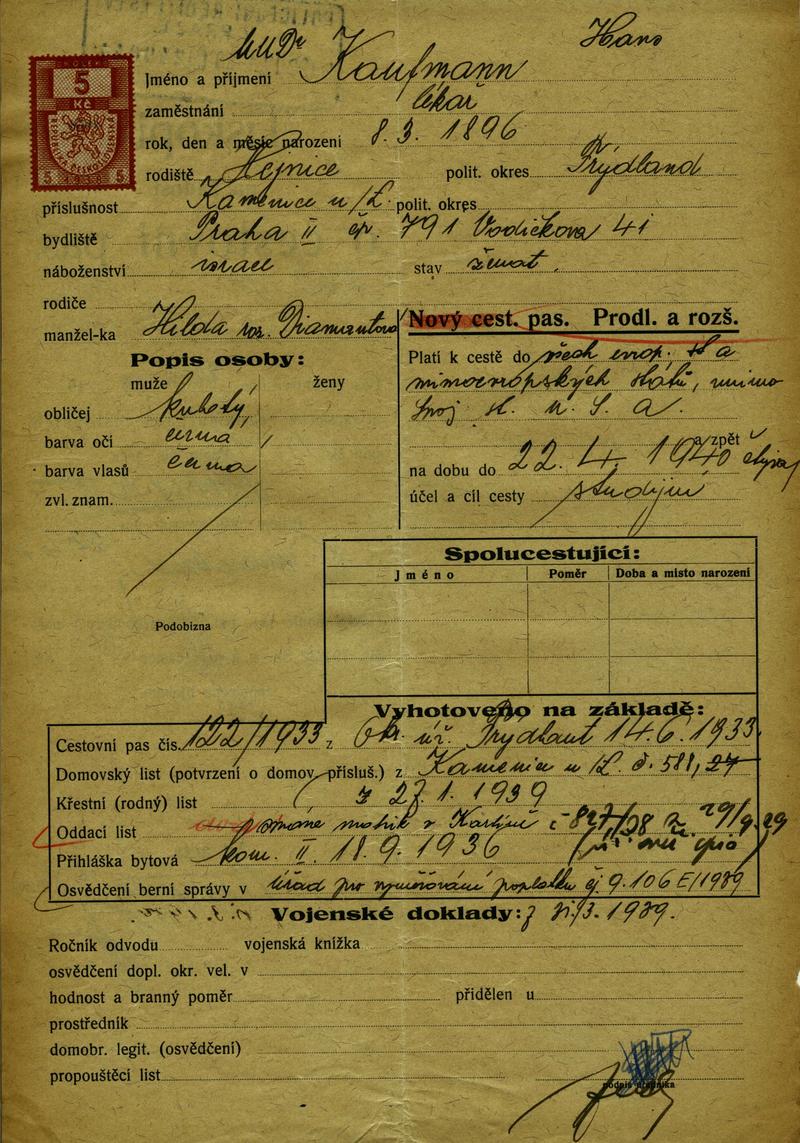 5
Kč
MUDr Kaufmann Hans
Jméno a příjmení
zaměstnání lékař
rok, den a měsíc narození 8. 3. 1896
rodiště Hejnice polit. okres Frýdland
příslušnost Kamenice n/L. polit. okres
bydliště Praha II čp. 791 Vodičkova 41
náboženství israel stav ženat
rodiče
manžel-ka Hilda roz. Diamantová
Nový cest. pas. Prodl. a rozš.
Popis osoby:
muže ženy
obličej kulatý
barva očí černá
barva vlasů černá
zvl. znam.
Platí k cestě do všech evrop. st a
mimoevropských států, mimo
a zpět
na dobu do 22. 4. 1940
účel a cíl cesty studijní
Spolucestující:
Jméno Poměr Doba a místo narození
Podobizna
Vyhotoveno na základě:
Cestovní pas čís. 122/1933 z Ok. úř. Frýdlant 14.6.1933
Domovský list (potvrzení o domov. přísluš.) z Kamenice n/L. č. 581,
Křestní (rodný) list z 27. 1. 1939
Oddací list matrik v č 827/38 z 29/9
Přihláška bytová kom. II. 18. 9. 1936
Osvědčení berní správy v Úřad pro vyměřování poplatků čj. 9.106 E/1939
Vojenské doklady: 1939.
Ročník odvodu vojenská knížka
osvědčení dopl. okr. vel. v
hodnost a branný poměr přidělen u
prostředník
domobr. legit. (osvědčení)
propouštěcí list
podpis úředníka